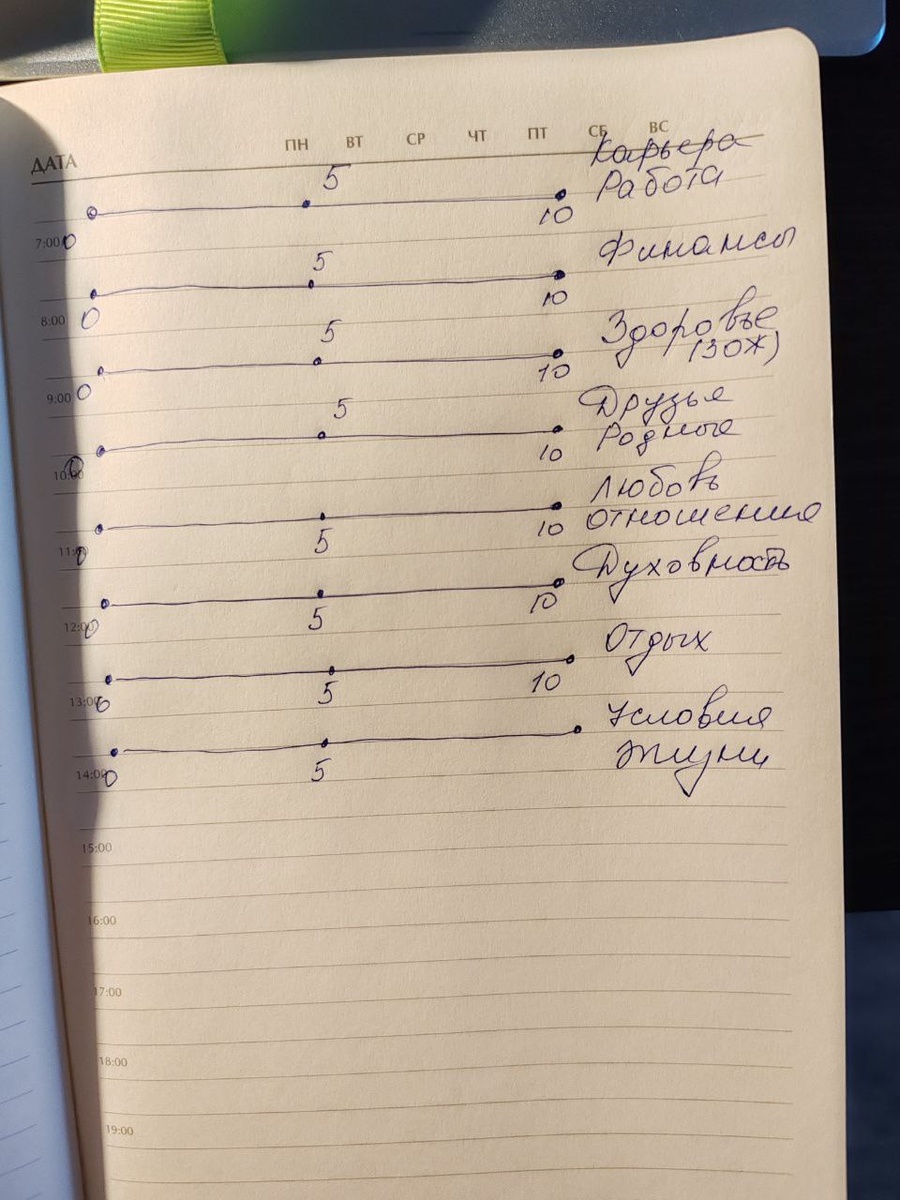 ДАТА ПН ВТ СР ЧТ ПТ СБ ВС
Карьера
5
Работа
10
7:00 0
Финансы
5
10
8:00 0
Здоровье
5
(ЗОЖ)
10
9:00 0
Друзья
5
Родные
10
10:00 0
Любовь
10 отношения
11:00 0 5
Духовность
10
12:00 0 5
Отдых
10
13:00 0 5
Условия
жизни
14:00 0 5
15:00
16:00
17:00
18:00
19:00